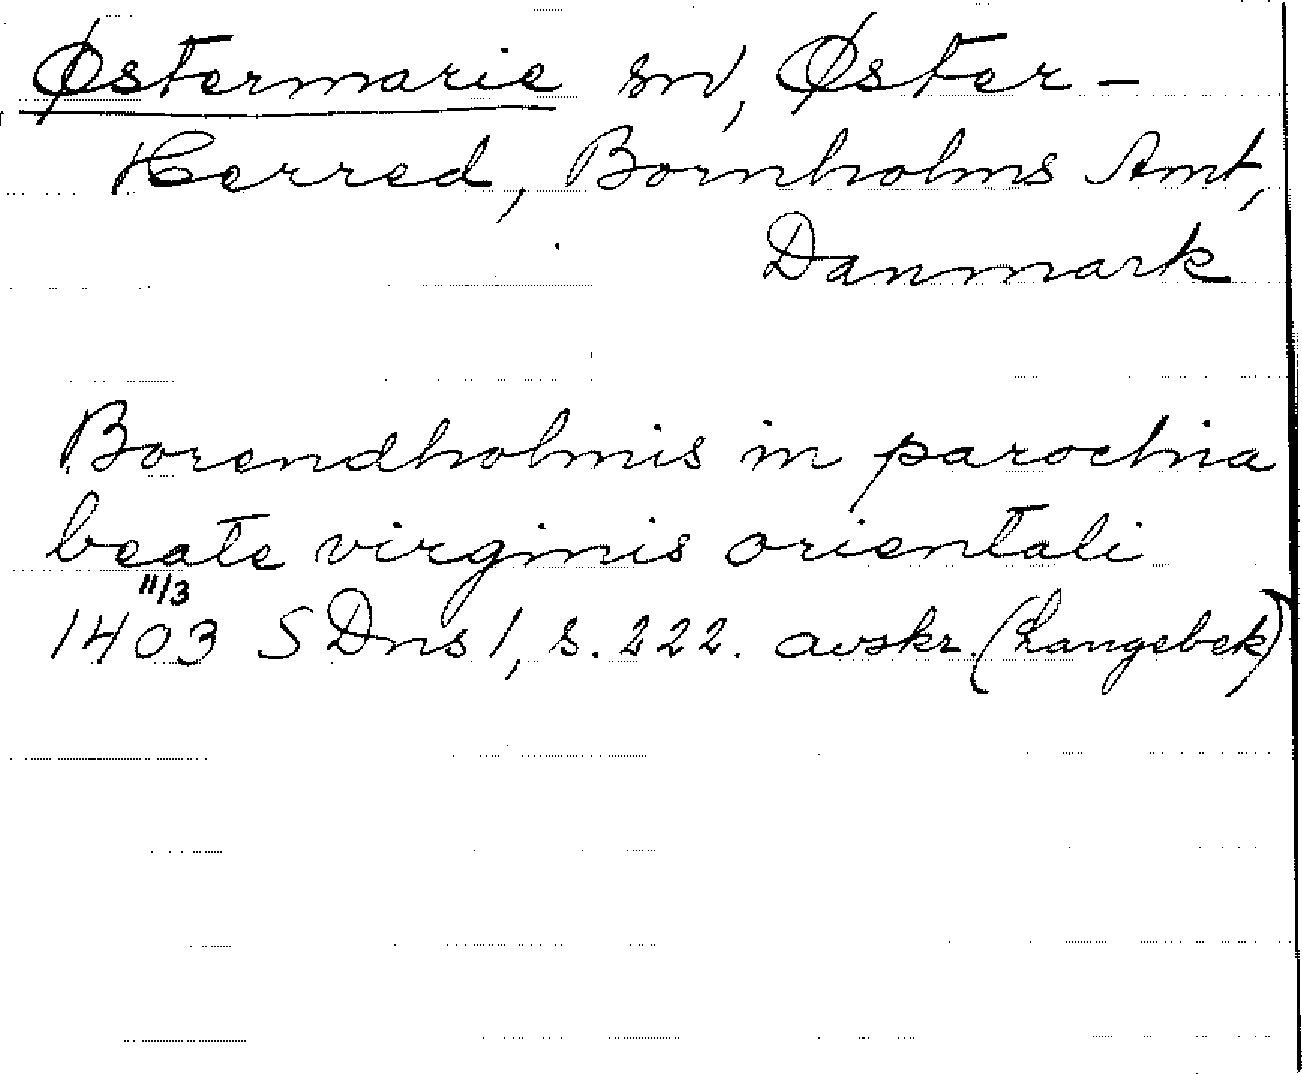 Østermarie sn, Øster-
Herred, Bornholms Amt,
Danmark
Borendholmis in parochia
beate virginis orientali
11/3
1403 SDns 1, s. 222. avskr. (Langebek)